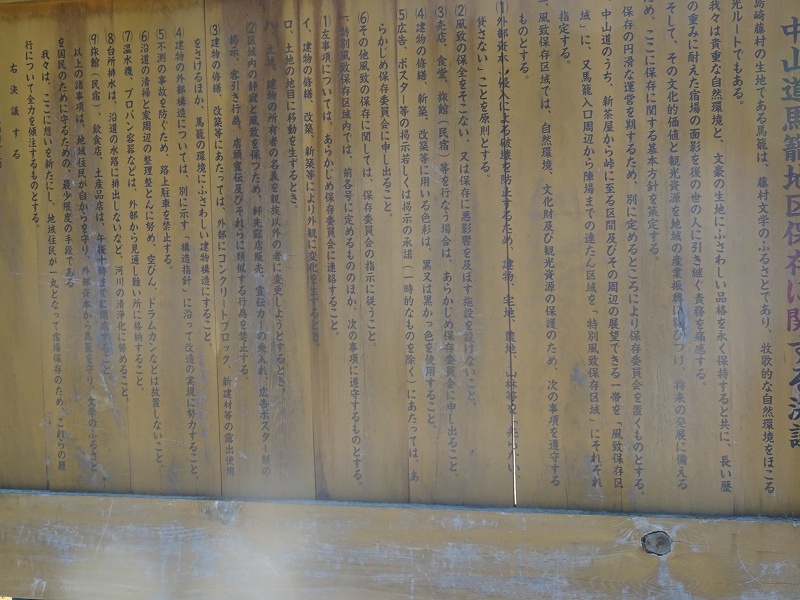 中山道馬籠地区保存に関する決議
島崎藤村の生地である馬籠は、藤村文学のふるさとであり、牧歌的な自然環境をほこる
光ルートでもある。
我々は貴重な自然環境と、文豪の生地にふさわしい品格を永く保持すると共に、長い歴
の重みに耐えた宿場の面影を後の世の人に引き継ぐ責務を痛感する。
そして、その文化的価値と観光資源を地域の産業振興に結びつけ、将来の発展に備える
め、ここに保存に関する基本方針を策定する。
保存の円滑な運営を期するため、別に定めるところにより保存委員会を置くものとする。
中山道のうち、新茶屋から峠に至る区間及びその周辺の展望できる一帯を「風致保存区
域」に、又馬籠入口周辺から陣場までの連たん区域を「特別風致保存区域」にそれぞれ
指定する。
風致保存区域では、自然環境、文化財及び観光資源の保護のため、次の事項を遵守する
ものとする。
(1)外部資本の侵入による破壊を防止するため、建物、宅地、農地、山林等を「売らない、
貸さない」ことを原則とする。
(2)風致の保全をそこない、又は保存に悪影響を及ぼす施設を設けないこと。
(3)売店、食堂、旅館(民宿)等を行なう場合は、あらかじめ保存委員会に申し出ること。
(4)建物の修繕、新築、改築等に用いる色彩は、黒又は黒かっ色を使用すること。
(5)広告、ポスター等の掲示若しくは掲示の承諾(一時的なものを除く)にあたっては、あ
らかじめ保存委員会に申し出ること。
(6)その他風致の保存に関しては、保存委員会の指示に従うこと。
特別風致保存区域内では、前各号に定めるもののほか、次の事項に遵守するものとする。
(1)左事項については、あらかじめ保存委員会に連絡すること。
イ、建物の修繕、改築、新築等により外観に変化を生ずるとき。
ロ、土地の地目に移動を生ずるとき。
ハ、土地、建物の所有者の名義を親族以外の者に変更しようとするとき。
(2)区域内の静寂と風致を保つため、軒先露店販売、宣伝カーの乗入れ、広告ポスター類の
掲示、客引き行為、店頭宣伝及びそれらに類似する行為を禁止する。
(3)建物の修繕、改築、新築等にあたっては、外部にコンクリートブロック、新建材等の露出使用
をさけるほか、馬籠の環境にふさわしい建物構造にすること。
(4)建物の外部構造については、別に示す「構造指針」に沿って改造の実現に努力すること。
(5)不測の事故を防ぐため、路上駐車を禁止する。
(6)沿道の清掃と家周辺の整理整とんに努め、空びん、ドラムカンなどは放置しないこと。
(7)温水機、プロパン容器などは、外部から見通し難い所に格納すること。
(8)台所排水は、沿道の水路に排出しないなど、河川の清浄化に努めること。
(9)旅館(民宿)、飲食店、土産品店は、午後十時までに閉店すること。
以上の諸事項は、地域住民が自からを守り、外部資本から馬籠を守り、文学のふるさと
を国民のために守るための、最少限度の手段である
我々は、ここに想いを新たにし、地域住民が一丸となって宿場保存のため、これらの履
行について全力を傾注するものとする。
右決議する